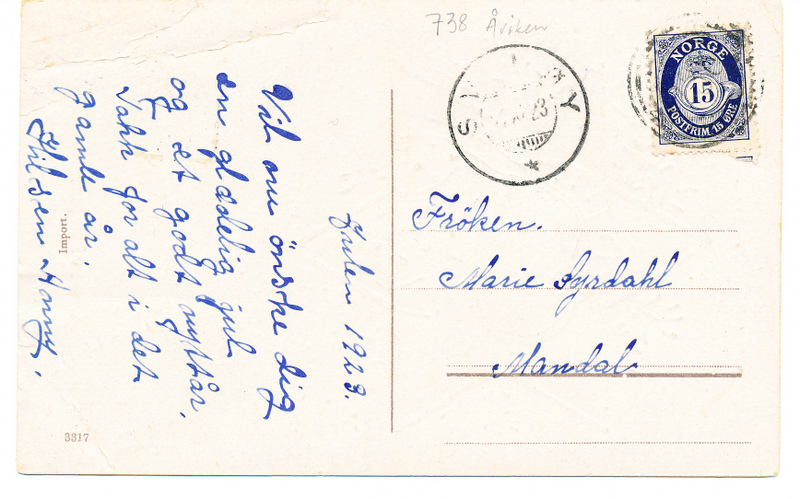 738 Åviken
NORGE
15
POSTFRIM. 15 ØRE
23
Julen 1923.
Vil ou önske dig
en glædelig jul
og et godt nyttår,
Takk for alt i det
gamle år.
Hilsen
Fröken.
Marie Syrdahl
Mandal
Import.
3317